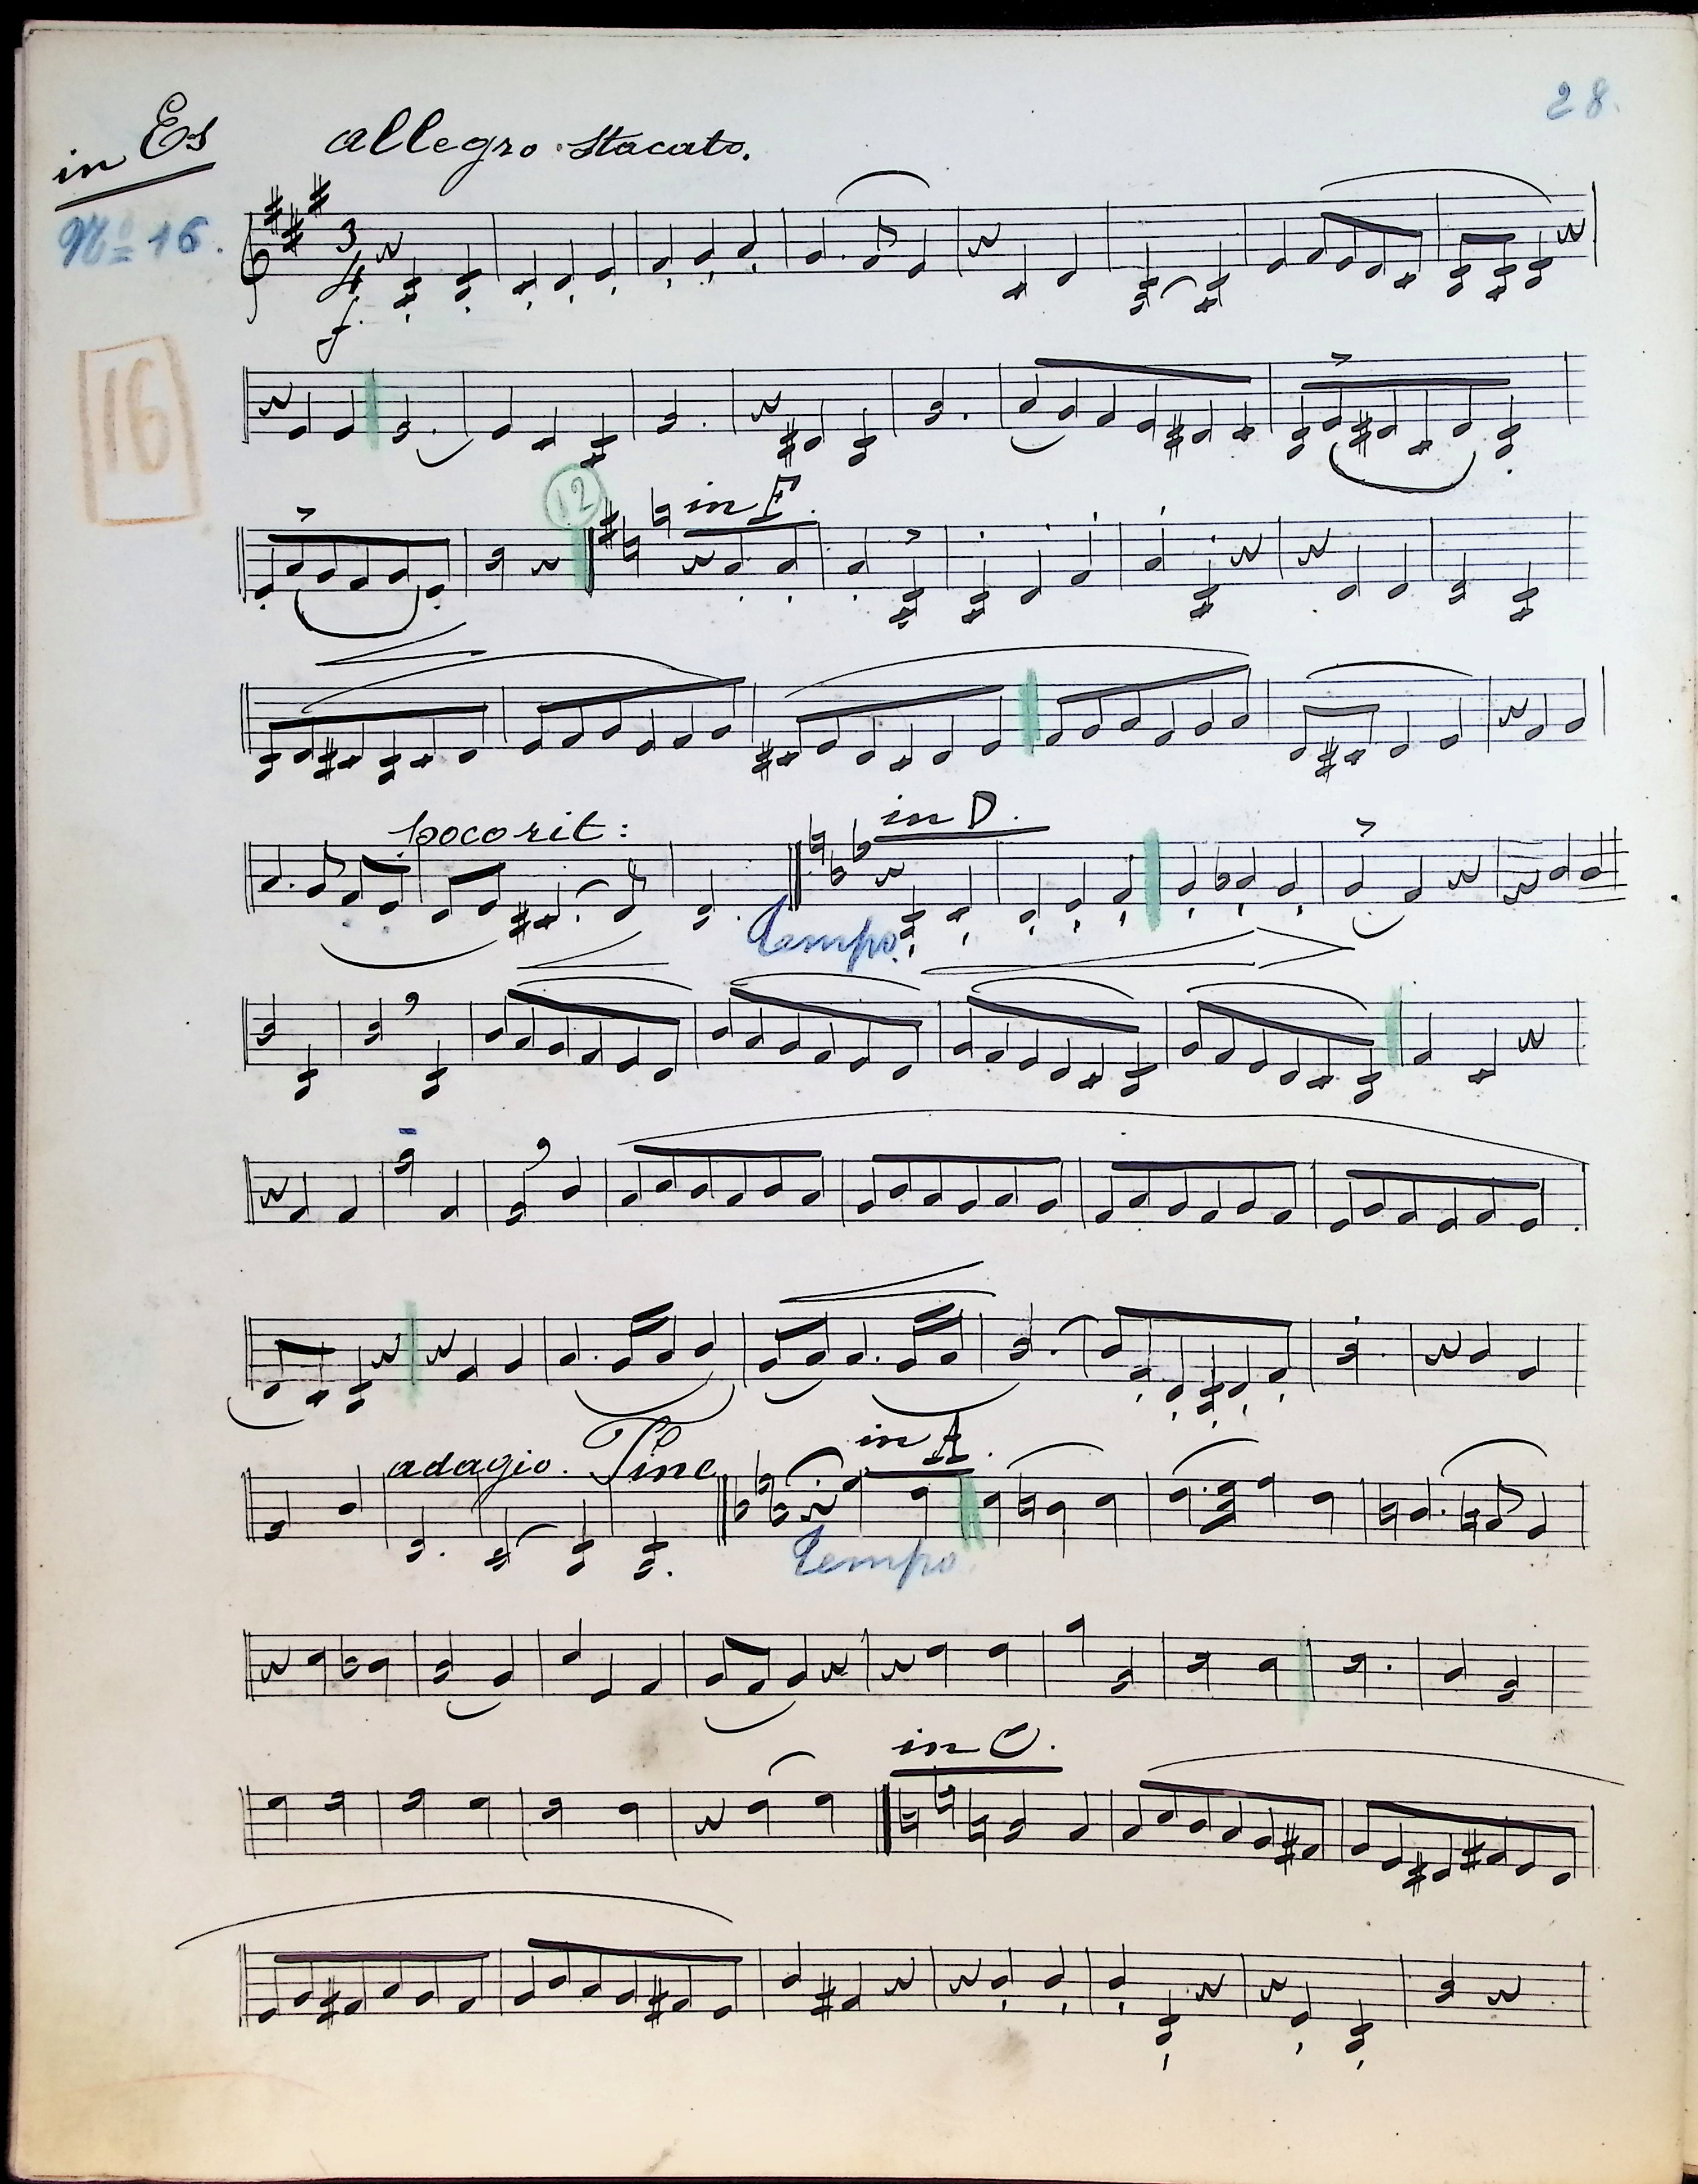 28.
in Es allegro stacato.
No 16.
3
4
f.
16
12
in F.
poco rit:
in D.
tempo.
adagio. Fine
in A.
tempo.
in C.